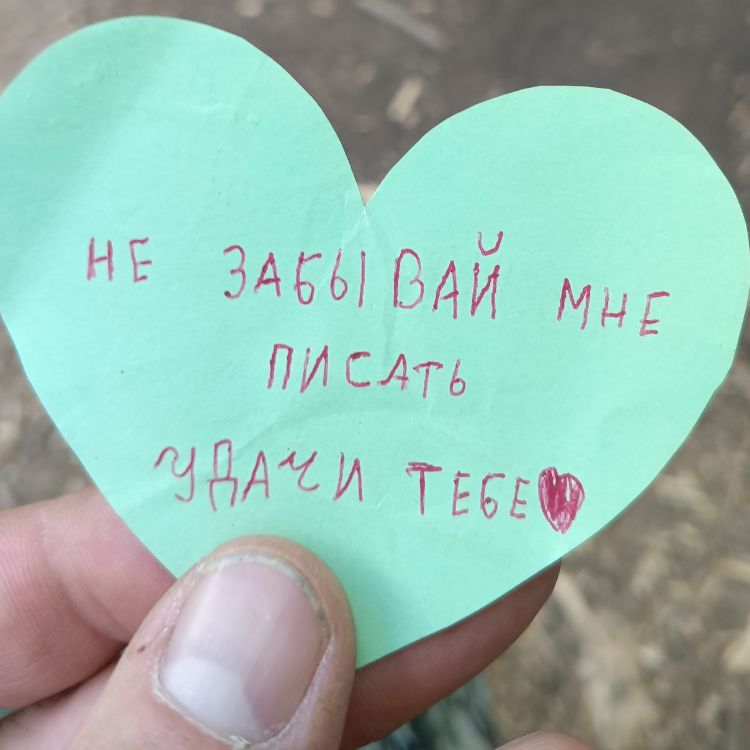 НЕ ЗАБЫВАЙ МНЕ
ПИСАТЬ
УДАЧИ ТЕБЕ